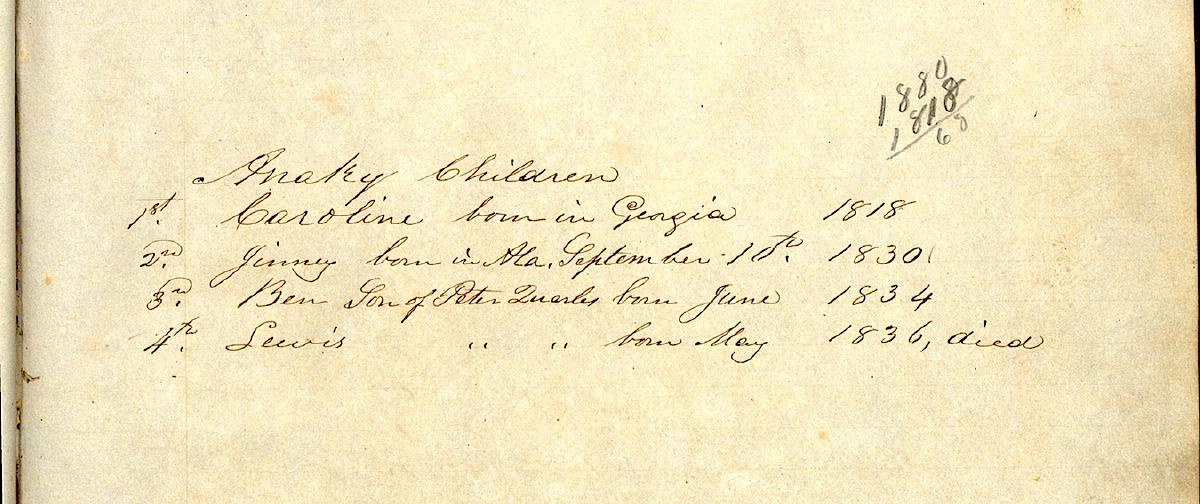 1880
1818
68
Anaky Children
1st. Caroline born in Georgia 1818
2nd. Jinney born in Ala. September 10th. 1830
3rd. Ben Son of Peter Quarles born June 1834
4th. Lewis " " born May 1836, died